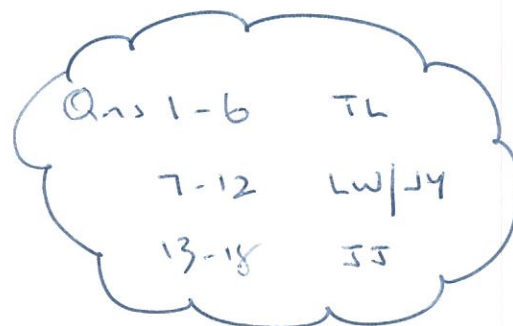 Qns 1-6 TL
7-12 LW/JY
13-18 JJ